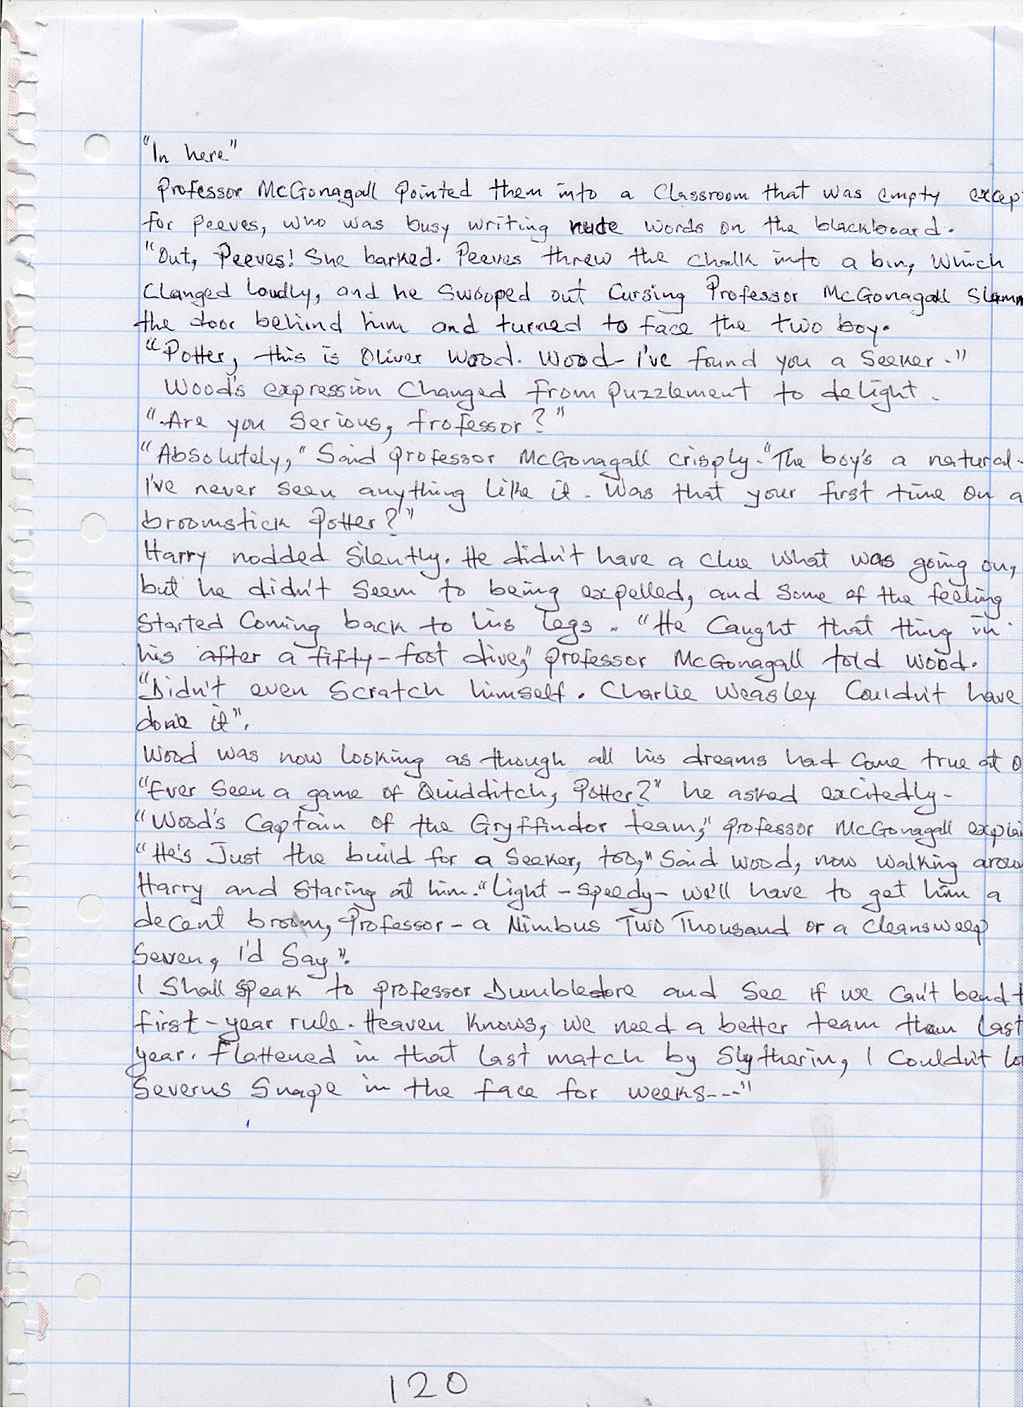 "In here"
Professor McGonagall pointed them into a Classroom that was empty excep
for Peeves, who was busy writing rude words on the blackboard.
"Out, Peeves! She barked. Peeves threw the chalk into a bin, which
Clanged Loudly, and he swooped out Cursing Professor McGonagall Slamm
the door behind him and turned to face the two boy.
"Potter, this is Oliver Wood. Wood - I've found you a Seeker."
Wood's expression Changed from Puzzlement to delight.
"Are you Serious, Professor?"
"Absolutely," Said professor McGonagall crisply. "The boy's a natural.
I've never seen anything like it. Was that your first time on a
broomstick Potter?"
Harry nodded Silently. He didn't have a clue what was going on,
but he didn't Seem to being expelled, and Some of the feeling
Started Coming back to his legs. "He Caught that thing in
his after a fifty-foot dive," professor McGonagall told Wood.
"Didn't even Scratch himself. Charlie Weasley Couldn't have
done it".
Wood was now looking as though all his dreams had Come true at o
"Ever Seen a game of Quidditch, Potter?" he asked excitedly-
"Wood's Captain of the Gryffindor team," professor McGonagall explai
"He's Just the build for a Seeker, too," Said Wood, now walking arou
Harry and Staring at him. "Light - speedy - we'll have to get him a
decent broom, Professor - a Nimbus Two Thousand or a Cleansweep
Seven, I'd Say".
I Shall speak to professor Dumbledore and See if we Can't bend t
first-year rule. Heaven knows, we need a better team than last
year. Flattened in that last match by Slytherin, I Couldn't lo
Severus Snape in the face for weeks---"
120